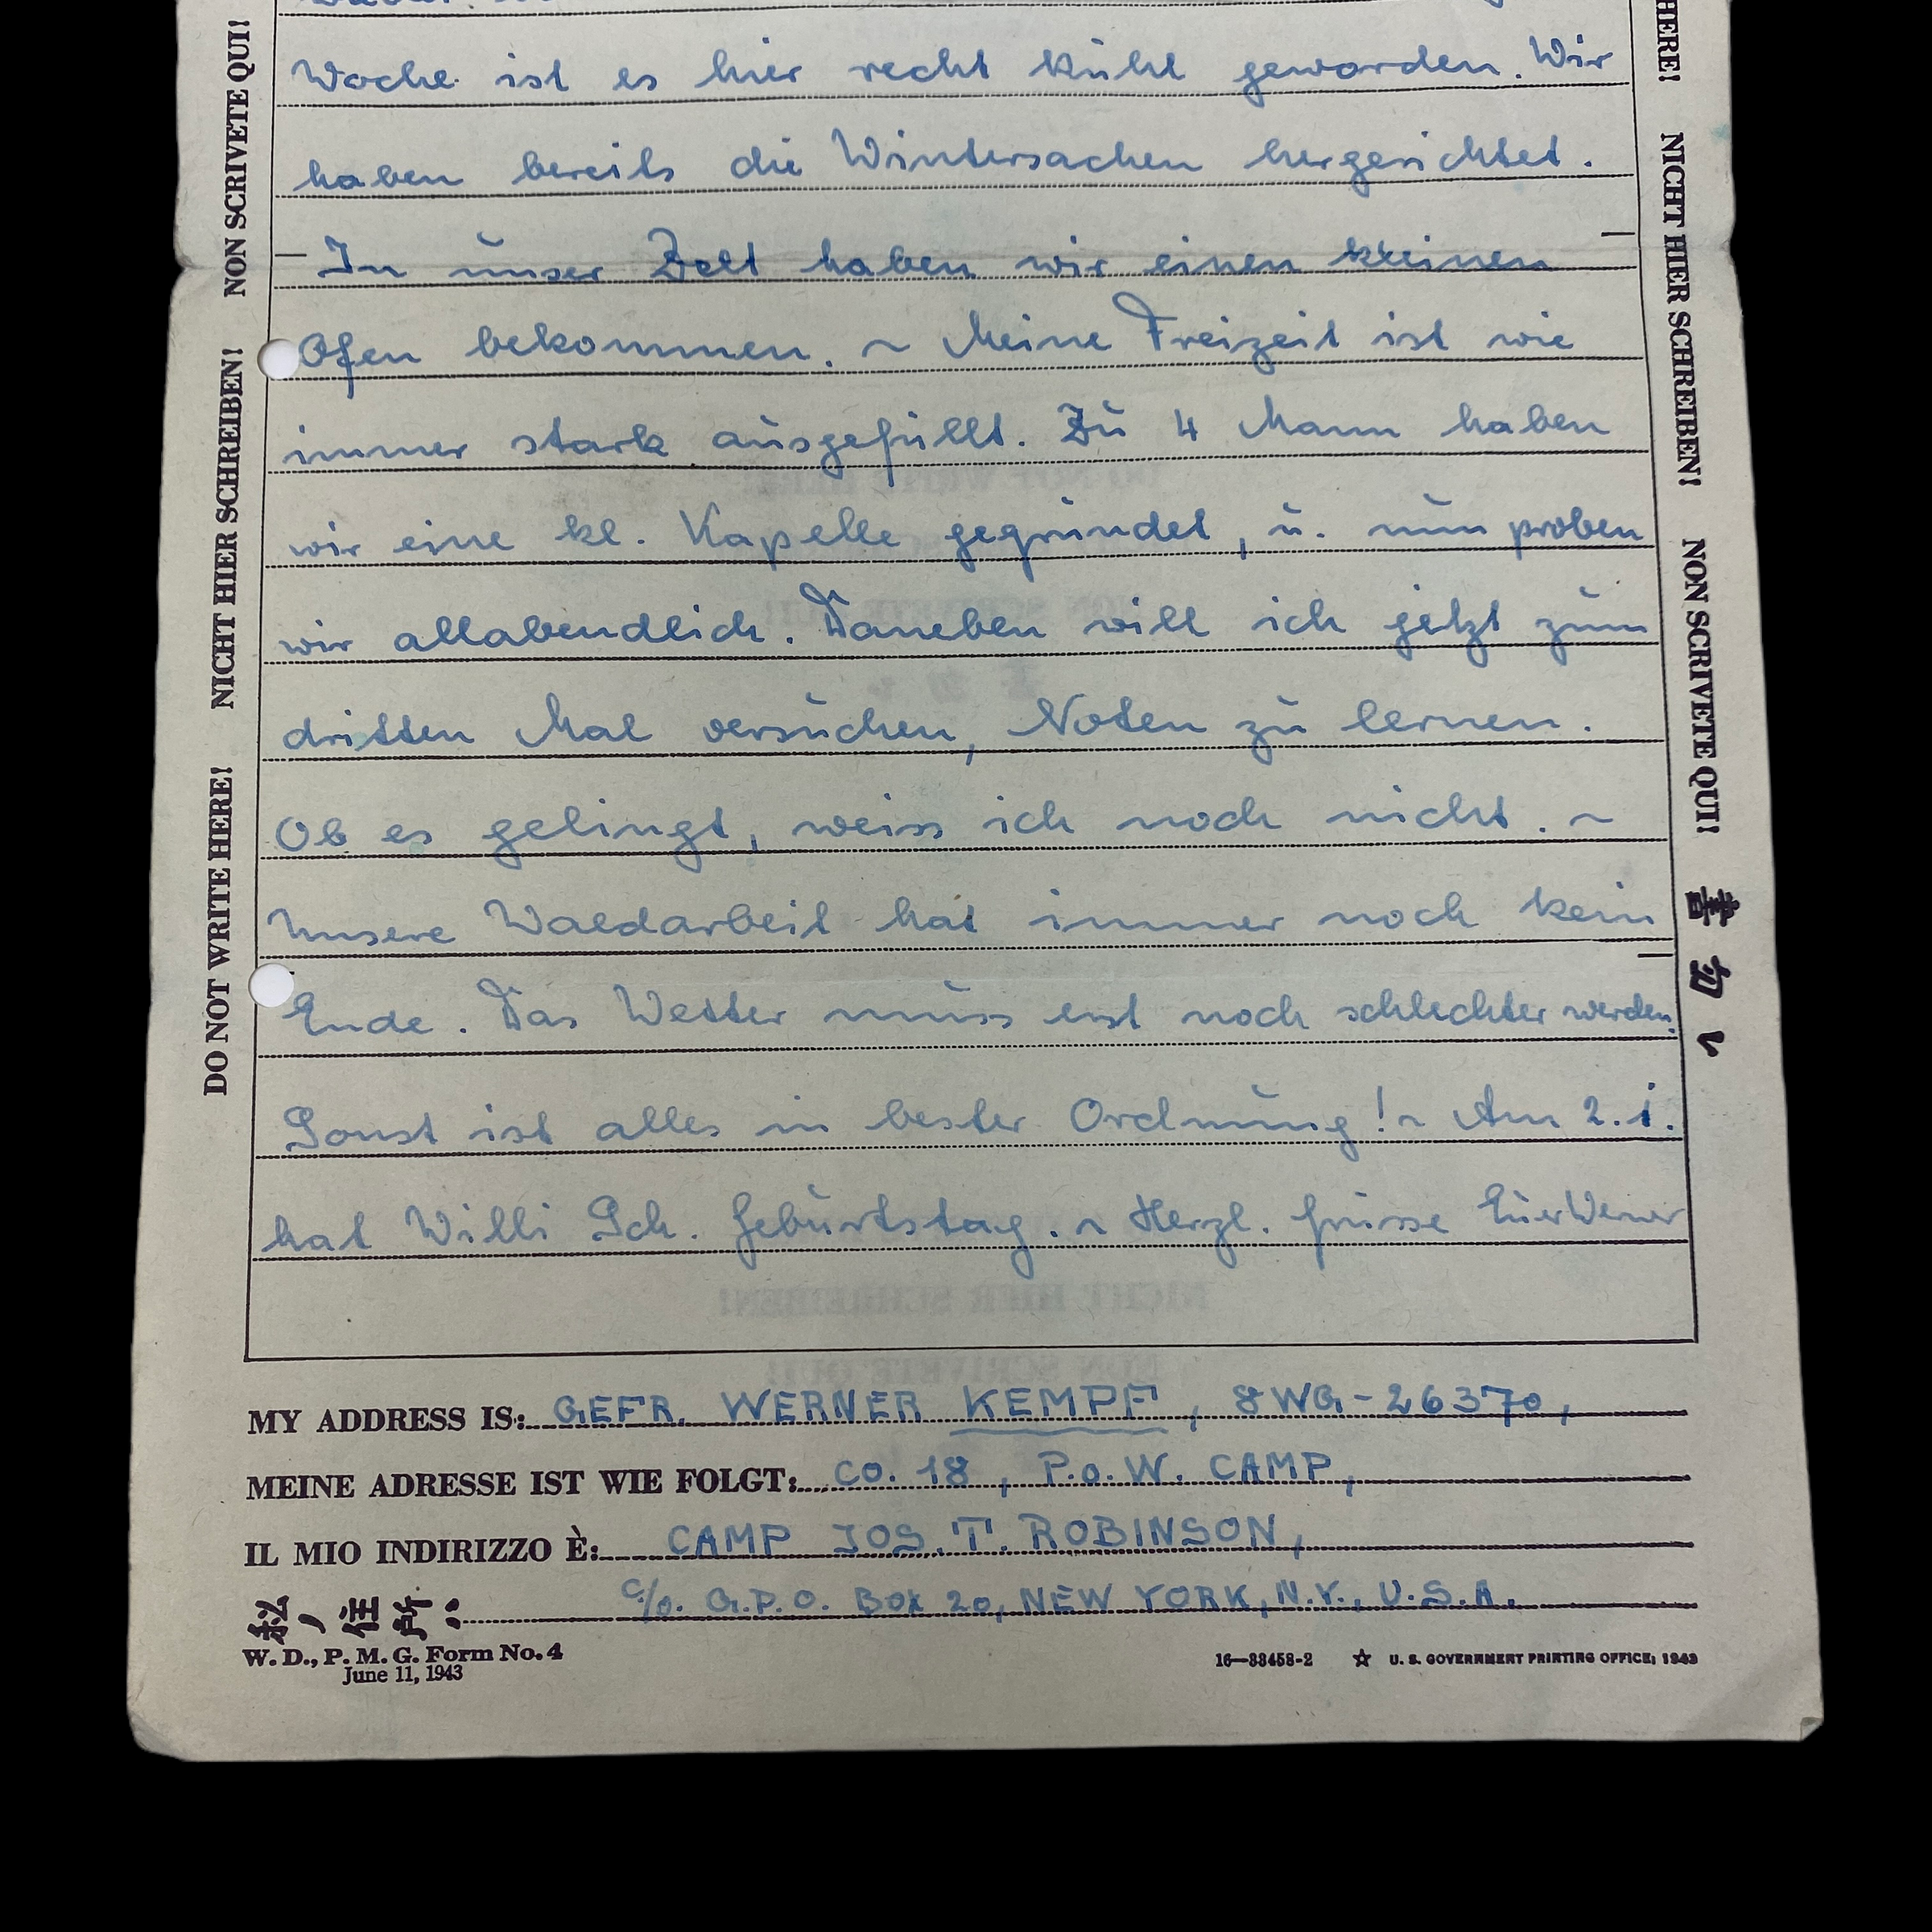 Woche ist es hier recht kühl geworden. Wir
haben bereits die Wintersachen hergerichtet.
— In unser Zelt haben wir einen kleinen
Ofen bekommen. ~ Meine Freizeit ist wie
immer stark ausgefüllt. Zu 4 Mann haben
wir eine kl. Kapelle gegründet, u. nun proben
wir allabendlich. Daneben will ich jetzt zum
dritten Mal versuchen, Noten zu lernen.
Ob es gelingt, weiss ich noch nicht. ~
Unsere Waldarbeit hat immer noch kein
Ende. Das Wetter muss erst noch schlechter werden.
Sonst ist alles in bester Ordnung! ~ Am 2.1.
hat Willi Sch. Geburtstag. ~ Herzl. Grüsse Euer Werner
MY ADDRESS IS: GEFR. WERNER KEMPF, 8WG-26370,
MEINE ADRESSE IST WIE FOLGT: CO. 18, P.o.W. CAMP,
IL MIO INDIRIZZO È: CAMP JOS. T. ROBINSON,
私ノ住所: c/o. G.P.O. Box 20, NEW YORK, N.Y., U.S.A.
W. D., P. M. G. Form No. 4
June 11, 1943
16—33458-2 ☆ U. S. GOVERNMENT PRINTING OFFICE: 1943
DO NOT WRITE HERE! NICHT HIER SCHREIBEN! NON SCRIVETE QUI!
HERE! NICHT HIER SCHREIBEN! NON SCRIVETE QUI! 書クナ